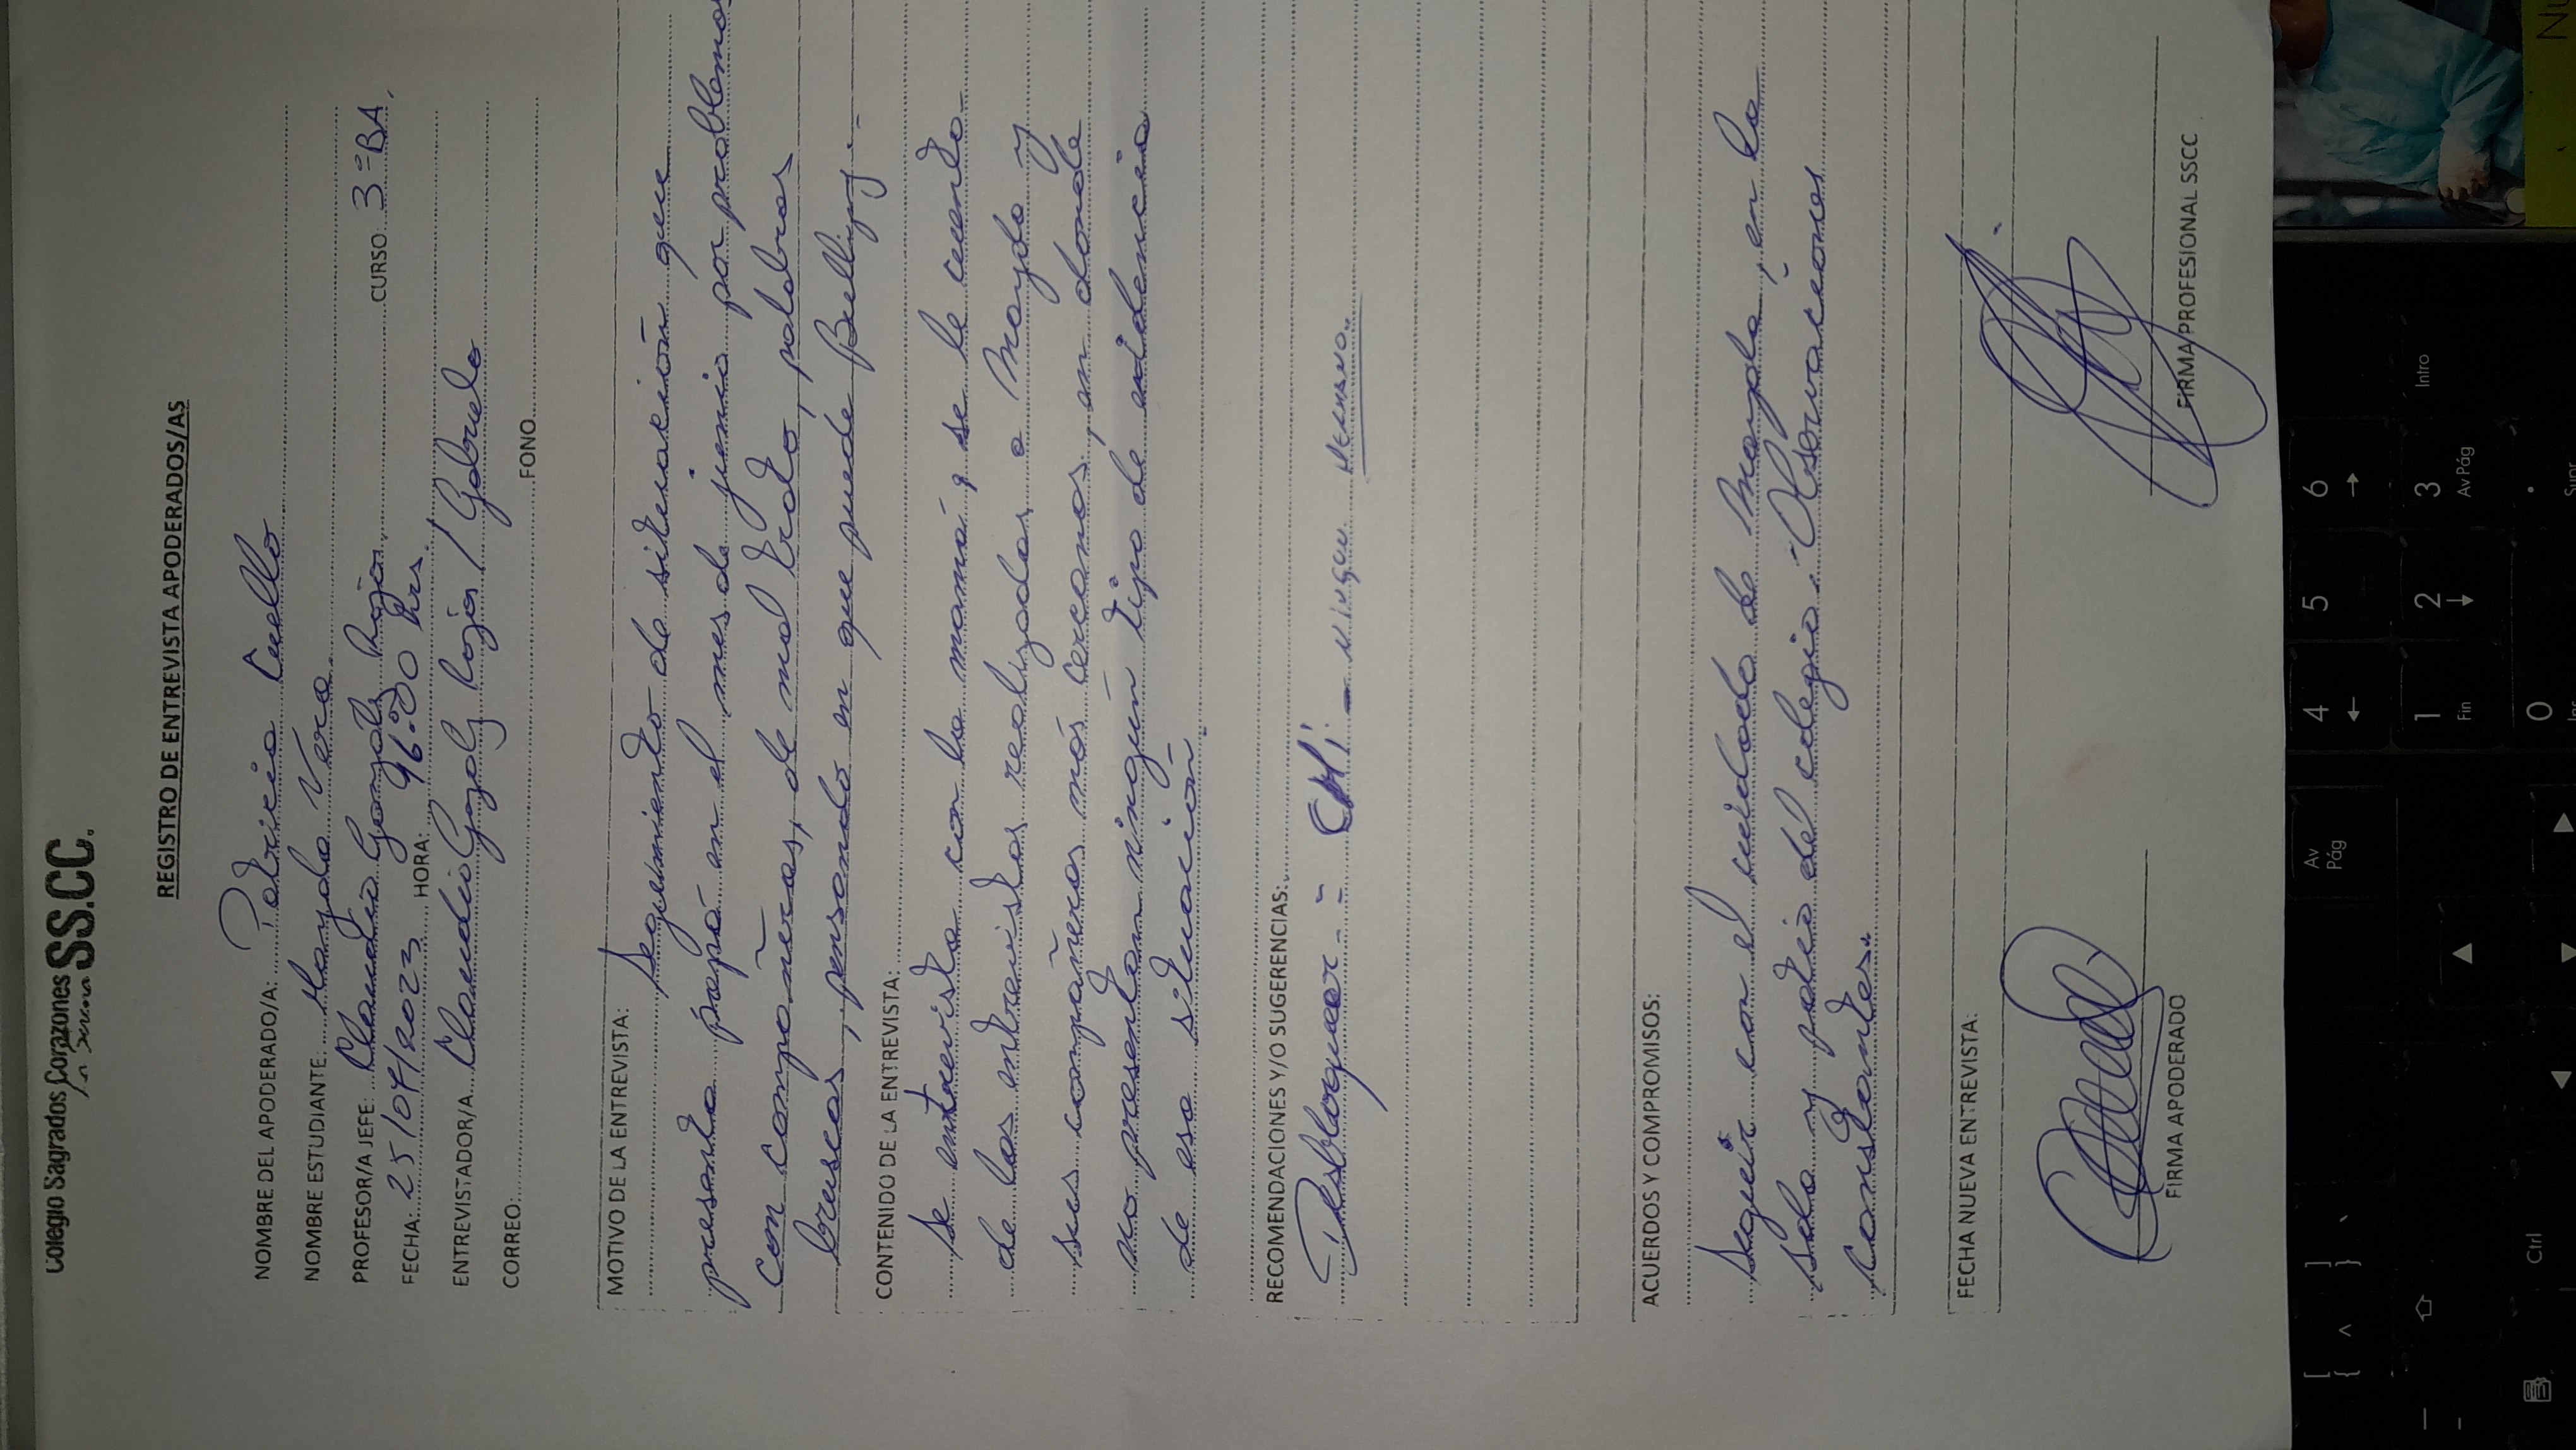 Colegio Sagrados Corazones SS.CC.
La Serena
REGISTRO DE ENTREVISTA APODERADOS/AS
NOMBRE DEL APODERADO/A: Patricia Cuello
NOMBRE ESTUDIANTE: Mayda Vera
PROFESOR/A JEFE: Claudia González Rojas CURSO 3ºBA.
FECHA: 25/07/2023 HORA: 16:00 hrs.
ENTREVISTADOR/A. Claudia Rojas / Gabriela
CORREO: FONO
MOTIVO DE LA ENTREVISTA: Seguimiento de situación que
presenta papá en el mes de junio por problemas
con compañeras, de mal trato, palabras
bruscas, pensando en que puede Bulliyng.-
CONTENIDO DE LA ENTREVISTA:
Se entrevista con la mamá y se le cuenta
de las entrevistas realizadas a Mayda y
sus compañeros más cercanos, en donde
no presentan ningún tipo de evidencia
de esa situación.
RECOMENDACIONES Y/O SUGERENCIAS:
Desbloquear.=
ACUERDOS Y COMPROMISOS:
Seguir con el cuidado de Mayda, en la
sala y patio del colegio. Observaciones
constantes.
FECHA NUEVA ENTREVISTA:
FIRMA APODERADO
FIRMA PROFESIONAL SSCC
4
5
6
1
Fin
2
3
Av Pág
Intro
0
Av
Pág
Ctrl